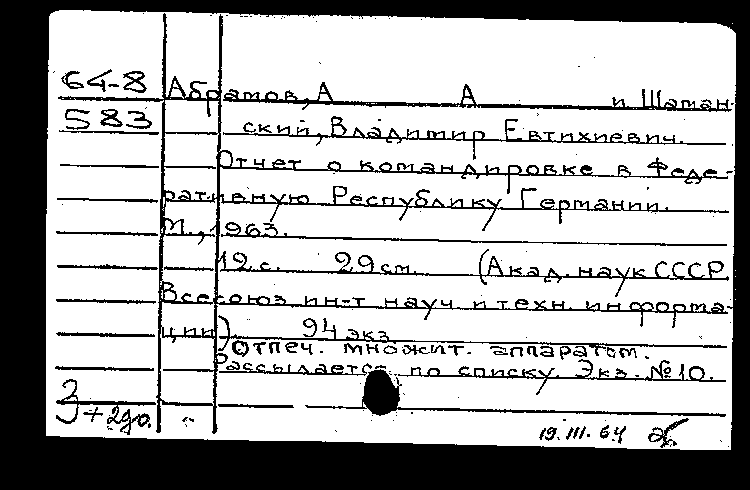 64-8 Абрамов, А А и Шаман-
583 ский, Владимир Евтихиевич.
Отчет о командировке в Феде-
ративную Республику Германии.
М., 1963.
12 с. 29 см. (Акад. наук СССР.
Всесоюз. ин-т науч. и техн. информа-
ции). 94 экз.
Отпеч. множит. аппаратом.
Рассылается по списку. Экз. №10.
3
+2др. "
19.III.64